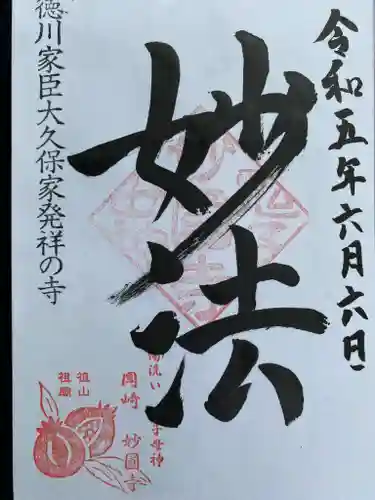 令和五年六月六日
妙法
徳川家臣大久保家発祥の寺
湯洗い
子母神
岡崎 妙國寺
祖山